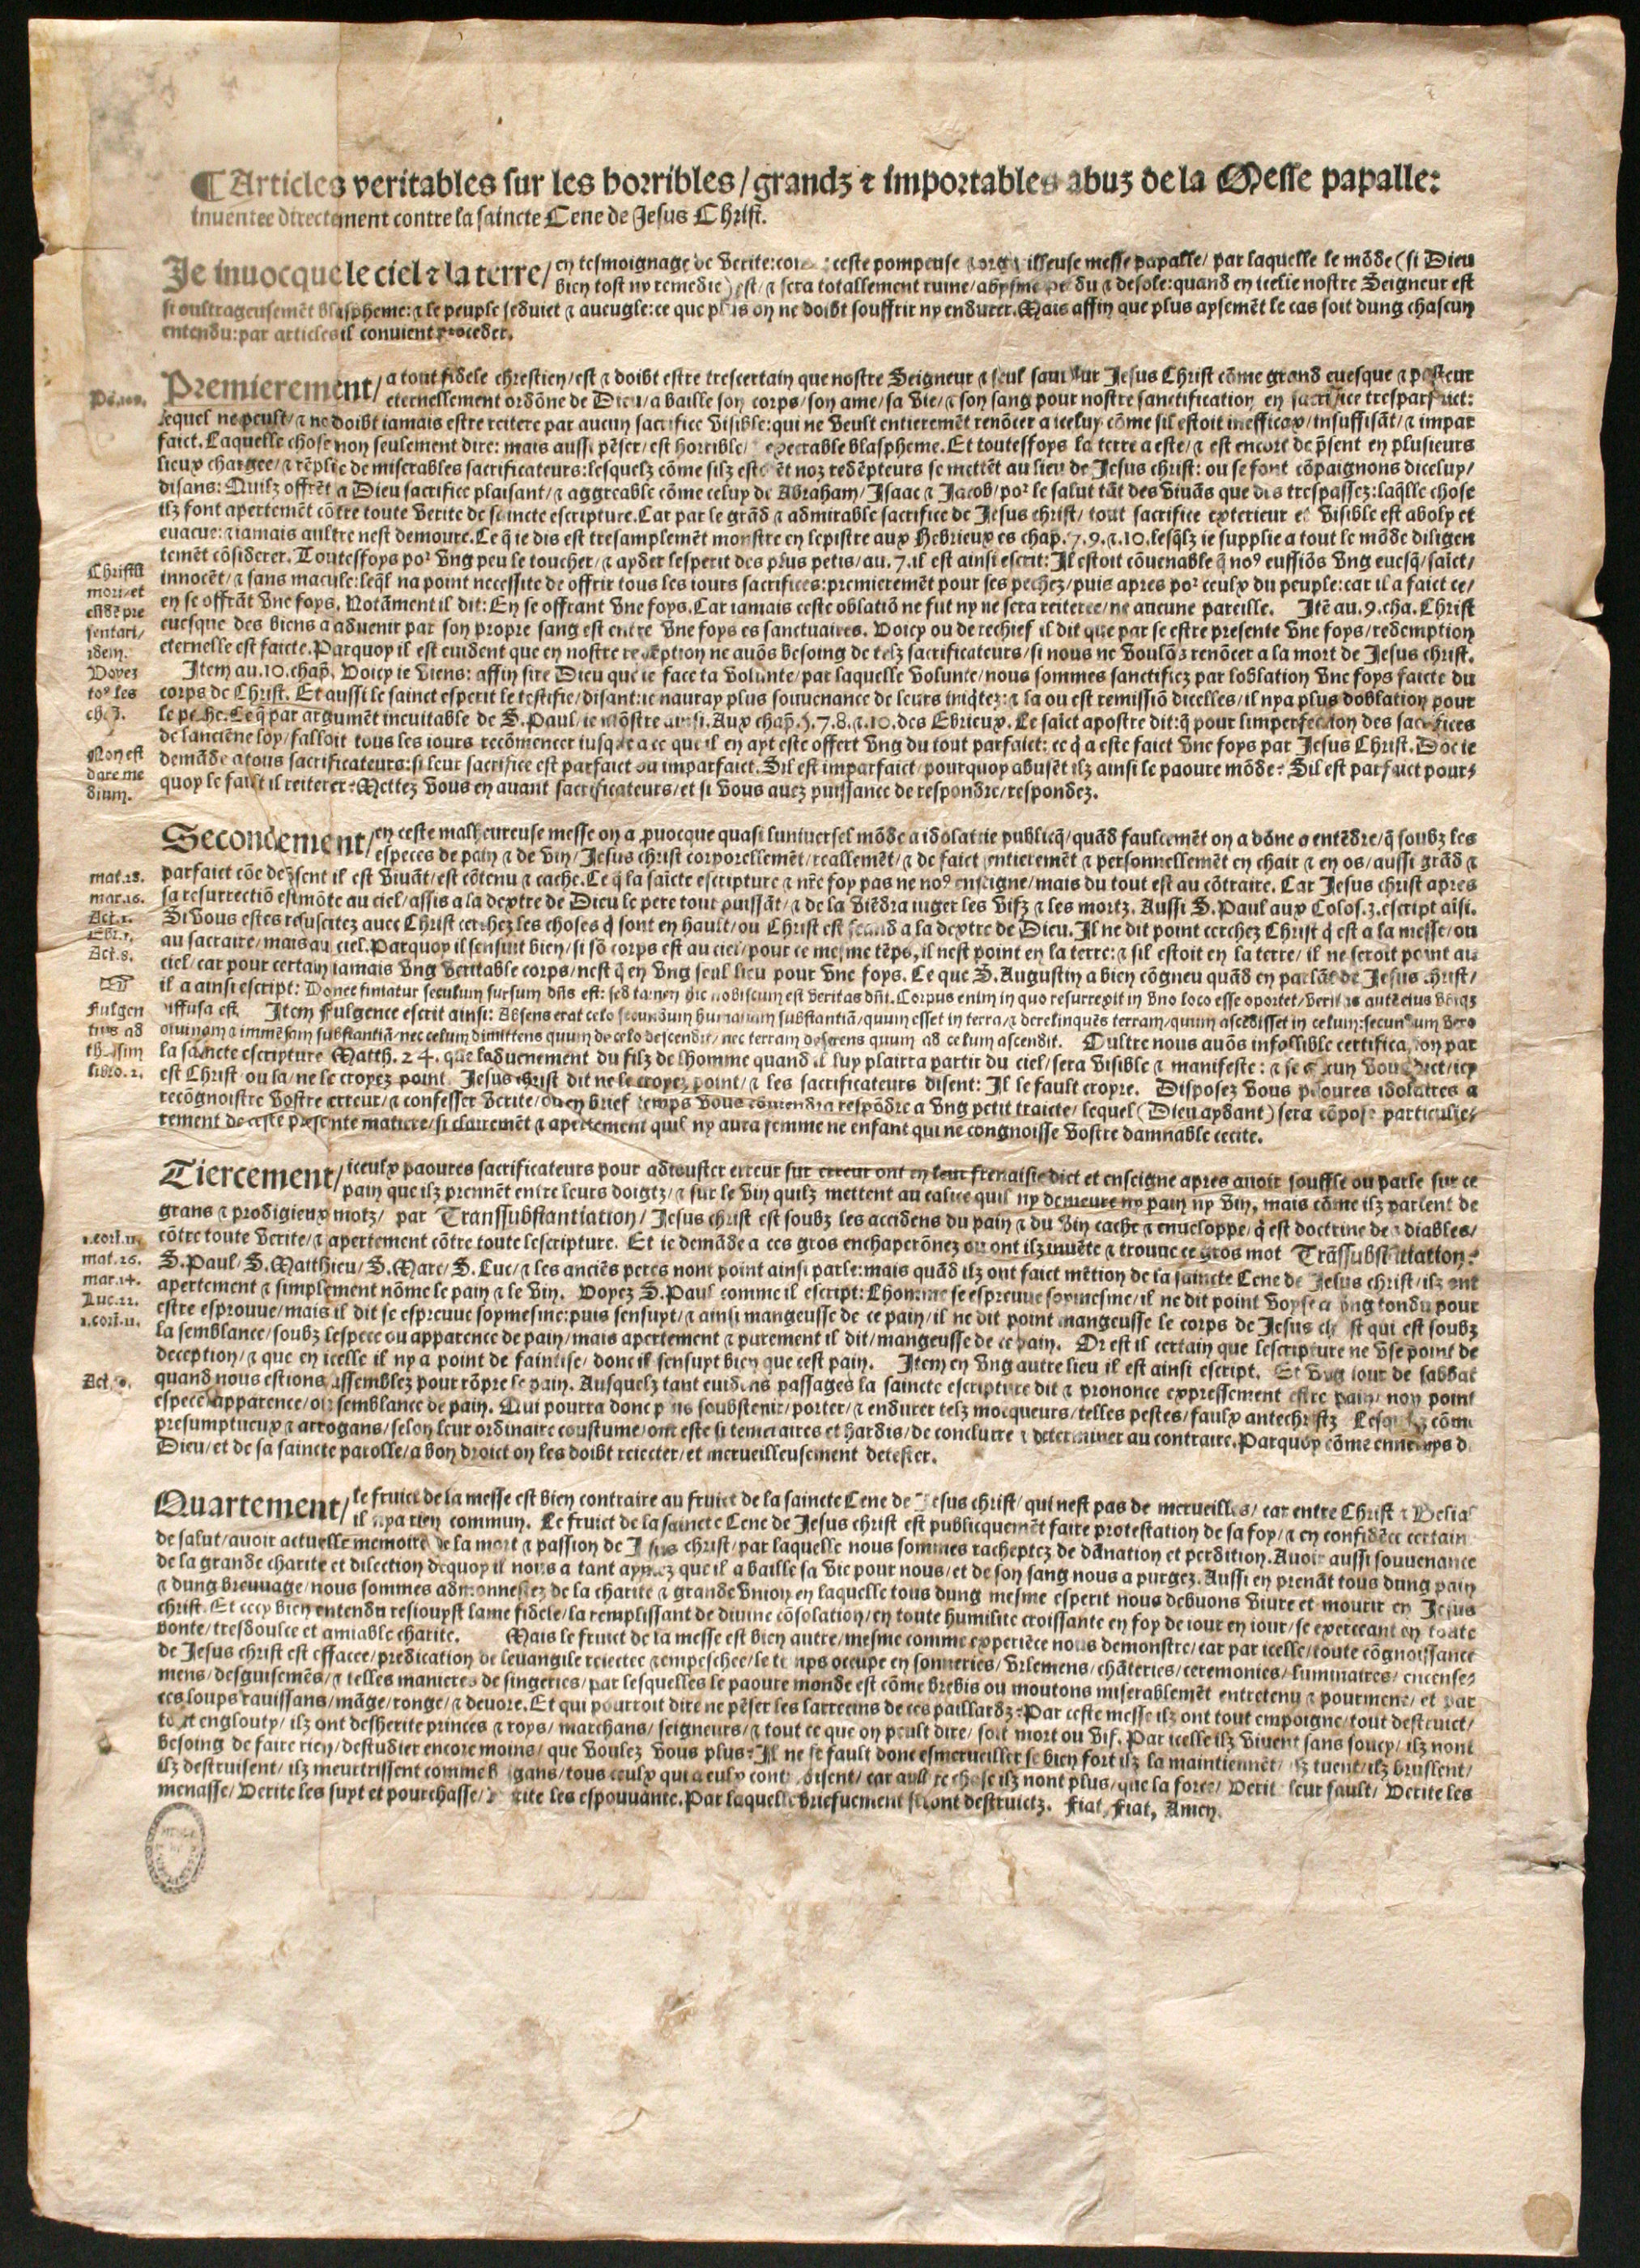 ¶ Articles veritables sur les horribles / grandz ⁊ importables abuz de la Messe papalle:
inuentee directement contre la saincte Cene de Jesus Christ.
Je inuocque le ciel ⁊ la terre / en tesmoignage de verite: ceste pompeuse orgueilleuse messe papalle / par laquelle le mõde (si Dieu
bien tost ny remedie) est / ⁊ sera totallement ruine / abysme ⁊ desole: quand en icelle nostre Seigneur est
si oultrageusemẽt blaspheme: ⁊ le peuple seduict ⁊ aueugle: ce que plus on ne doibt souffrir ny endurer. Mais affin que plus aysemẽt le cas soit dung chascun
entendu: par articles il conuient proceder.
Premierement / a tout fidele chrestien / est ⁊ doibt estre trescertain que nostre Seigneur ⁊ seul sauueur Jesus Christ cõme grand euesque ⁊ pasteur
eternellement ordõne de Dieu / a baille son corps / son ame / sa vie / ⁊ son sang pour nostre sanctification en sacrifice tresparfaict:
lequel ne peult / ⁊ ne doibt iamais estre reitere par aucun sacrifice visible: qui ne veult entieremẽt renõcer a iceluy cõme sil estoit inefficax / insuffisãt / ⁊ impar
faict. Laquelle chose non seulement dire: mais aussi pẽser / est horrible / execrable blaspheme. Et toutesfoys la terre a este / ⁊ est encore de p̃sent en plusieurs
lieux chargee / ⁊ rẽplie de miserables sacrificateurs: lesquelz cõme silz estoiẽt noz redẽpteurs se mettẽt au lieu de Jesus christ: ou se font cõpaignons diceluy /
disans: Quilz offrẽt a Dieu sacrifice plaisant / ⁊ aggreable cõme celuy de Abraham / Isaac ⁊ Jacob / poꝛ le salut tãt des viuãs que des trespassez: laq̃lle chose
ilz font apertemẽt cõtre toute verite de saincte escripture. Car par le grãd ⁊ admirable sacrifice de Jesus christ / tout sacrifice exterieur et visible est aboly et
euacue: ⁊ iamais aultre nest demoure. Ce q̃ ie dis est tresamplemẽt monstre en lepistre aux Hebrieux es chap. 7. 9. ⁊. 10. lesq̃lz ie supplie a tout le mõde diligen
temẽt cõsiderer. Toutesfoys poꝛ vng peu le toucher / ⁊ ayder lesperit des plus petis / au. 7. il est ainsi escrit: Il estoit cõuenable q̃ noꝰ eussiõs vng euesq̃ / saict /
innocẽt / ⁊ sans macule: leq̃l na point necessite de offrir tous les iours sacrifices: premieremẽt pour ses pechez / puis apres poꝛ ceulx du peuple: car il a faict ce /
en se offrãt vne foys. Notãment il dit: En se offrant vne foys. Car iamais ceste oblatiõ ne fut ny ne sera reiteree / ne aucune pareille. Itẽ au. 9. cha. Christ
euesque des biens a aduenir par son propre sang est entre vne foys es sanctuaires. Voicy ou derechief il dit que par se estre presente vne foys / redemption
eternelle est faicte. Parquoy il est euident que en nostre redẽption ne auõs besoing de telz sacrificateurs / si nous ne voulõs renõcer a la mort de Jesus christ.
Item au. 10. chap̃. Voicy ie viens: affin sire Dieu que ie face ta volunte / par laquelle volunte / nous sommes sanctifiez par loblation vne foys faicte du
corps de Christ. Et aussi le sainct esperit le testifie / disant: ie nauray plus souuenance de leurs iniq̃tez: ⁊ la ou est remissiõ dicelles / il nya plus doblation pour
le peche. Ce q̃ par argumẽt ineuitable de S. Paul / ie mõstre ainsi. Aux chap̃. 5. 7. 8. ⁊. 10. des Ebrieux. Le saict apostre dit: q̃ pour limperfection des sacrifices
de lanciẽne loy / falloit tous les iours recõmencer iusque a ce que il en ayt este offert vng du tout parfaict: ce q̃ a este faict vne foys par Jesus Christ. Dõc ie
demãde a tous sacrificateurs: si leur sacrifice est parfaict ou imparfaict. Sil est imparfaict / pourquoy abusẽt ilz ainsi le paoure mõde? Sil est parfaict pour⸗
quoy le fault il reiterer? Mettez vous en auant sacrificateurs / et si vous auez puissance de respondre / respondez.
Christū
mori / et
pre
sentari /
idem.
Voyez
toꝰ les
Non est
dare me
dium.
Secondement / en ceste malheureuse messe on a prouocque quasi luniuersel mõde a idolatrie publicq̃ / quãd faulcemẽt on a dõne a entẽdre / q̃ soubz les
especes de pain ⁊ de vin / Jesus christ corporellemẽt / reallemẽt / ⁊ de faict entieremẽt ⁊ personnellemẽt en chair ⁊ en os / aussi grãd ⁊
parfaict cõe de p̃sent il est viuãt / est cõtenu ⁊ cache. Ce q̃ la saicte escripture ⁊ nr̃e foy pas ne noꝰ enseigne / mais du tout est au cõtraire. Car Jesus christ apres
sa resurrectiõ est mõte au ciel / assis a la dextre de Dieu le pere tout puissãt / ⁊ de la viẽdra iuger les vifz ⁊ les mortz. Aussi S. Paul aux Colos. 3. escript aisi.
Si vous estes resuscitez auec Christ cerchez les choses q̃ sont en hault / ou Christ est seand a la dextre de Dieu. Il ne dit point cerchez Christ q̃ est a la messe / ou
au sacraire / mais au ciel. Parquoy il sensuit bien / si sõ corps est au ciel / pour ce mesme tẽps, il nest point en la terre: ⁊ sil estoit en la terre / il ne seroit point au
ciel / car pour certain iamais vng veritable corps / nest q̃ en vng seul lieu pour vne foys. Ce que S. Augustin a bien cõgneu quãd en parlãt de Jesus christ /
il a ainsi escript: Donec finiatur seculum sursum dñs est: sed tamen hic nobiscum est veritas dñi. Corpus enim in quo resurrexit in vno loco esse oportet / veritas autẽ eius vbiqz
diffusa est. Item Fulgence escrit ainsi: Absens erat celo secundum humanam substantiã / quum esset in terra / ⁊ derelinquẽs terram / quum ascẽdisset in celum: secundum vero
diuinam ⁊ immẽsam substantiã / nec celum dimittens quum de celo descendit / nec terram deserens quum ad celum ascendit. Oultre nous auõs infallible certification par
la saincte escripture Matth. 24. que laduenement du filz de lhomme quand il luy plairra partir du ciel / sera visible ⁊ manifeste: ⁊ se aucun vous dict / icy
est Christ ou la / ne le croyez point. Jesus christ dit ne le croyez point / ⁊ les sacrificateurs disent: Il le fault croyre. Disposez vous paoures idolatres a
recõgnoistre vostre erreur / ⁊ confesser verite / ou en brief temps vous cõuiendra respõdre a vng petit traicte / lequel (Dieu aydant) sera cõpose particulie⸗
rement de ceste presente matiere / si clairemẽt ⁊ apertement quil ny aura femme ne enfant qui ne congnoisse vostre damnable cecite.
mat. 28.
mar. 16.
Act. 1.
Ebr. 1.
Act. 8.
Fulgen
tius ad
libro. 2.
Tiercement / iceulx paoures sacrificateurs pour adiouster erreur sur erreur ont en leur frenaisie dict et enseigne apres auoir souffle ou parle sur ce
pain que ilz prennẽt entre leurs doigtz / ⁊ sur le vin quilz mettent au calice quil ny demeure ny pain ny vin, mais cõme ilz parlent de
grans ⁊ prodigieux motz / par Transsubstantiation / Jesus christ est soubz les accidens du pain ⁊ du vin cache ⁊ enueloppe / q̃ est doctrine des diables /
cõtre toute verite / ⁊ apertement cõtre toute lescripture. Et ie demãde a ces gros enchaperõnez ou ont ilz inuẽte ⁊ trouue ce gros mot Trãssubstãtiation?
S. Paul / S. Matthieu / S. Marc / S. Luc / ⁊ les anciẽs peres nont point ainsi parle: mais quãd ilz ont faict mẽtion de la saincte Cene de Jesus christ / ilz ont
apertement ⁊ simplement nõme le pain ⁊ le vin. Voyez S. Paul comme il escript: Lhomme se espreuue soymesme / il ne dit point voyse a vng tondu pour
estre esprouue / mais il dit se espreuue soymesme: puis sensuyt / ⁊ ainsi mangeusse de ce pain / il ne dit point mangeusse le corps de Jesus christ qui est soubz
la semblance / soubz lespece ou apparence de pain / mais apertement ⁊ purement il dit / mangeusse de ce pain. Or est il certain que lescripture ne vse point de
deception / ⁊ que en icelle il ny a point de faintise / donc il sensuyt bien que cest pain. Item en vng autre lieu il est ainsi escript. Et vng iour de sabbat
quand nous estions assemblez pour rõpre le pain. Ausquelz tant euidens passages la saincte escripture dit ⁊ prononce expressement estre pain / non point
espece / apparence / ou semblance de pain. Qui pourra donc plus soubstenir / porter / ⁊ endurer telz mocqueurs / telles pestes / faulx antechristz? Lesquelz cõme
presumptueux ⁊ arrogans / selon leur ordinaire coustume / ont este si temeraires et hardis / de conclurre ⁊ determiner au contraire. Parquoy cõme ennemys d
Dieu / et de sa saincte parolle / a bon droict on les doibt reiecter / et merueilleusement detester.
1. cori. 11.
mat. 26.
mar. 14.
Luc. 22.
1. cori. 11.
Quartement / le fruict de la messe est bien contraire au fruict de la saincte Cene de Jesus christ / qui nest pas de merueilles / car entre Christ ⁊ Belial
il nya rien commun. Le fruict de la saincte Cene de Jesus christ est publicquemẽt faire protestation de sa foy / ⁊ en confidẽce certain
de salut / auoir actuelle memoire de la mort ⁊ passion de Jesus christ / par laquelle nous sommes racheptez de dãnation et perdition. Auoir aussi souuenance
de la grande charite et dilection dequoy il nous a tant aymez que il a baille sa vie pour nous / et de son sang nous a purgez. Aussi en prenãt tous dung pain
⁊ dung breuuage / nous sommes admonnestez de la charite ⁊ grande vnion en laquelle tous dung mesme esperit nous debuons viure et mourir en Jesus
christ. Et cecy bien entendu resiouyst lame fidele / la remplissant de diuine cõsolation / en toute humilite croissante en foy de iour en iour / se exerceant en toute
bonte / tresdoulce et amiable charite. Mais le fruict de la messe est bien autre / mesme comme experiẽce nous demonstre / car par icelle / toute cõgnoissance
de Jesus christ est effacee / predication de leuangile reiectee ⁊ empeschee / le temps occupe en sonneries / vrlemens / chãteries / ceremonies / luminaires / encense⸗
mens / desguisemẽs / ⁊ telles manieres de singeries / par lesquelles le paoure monde est cõme brebis ou moutons miserablemẽt entretenu ⁊ pourmene / et par
ces loups rauissans / mãge / ronge / ⁊ deuore. Et qui pourroit dire ne pẽser les larrecins de ces paillardz? Par ceste messe ilz ont tout empoigne / tout destruict /
tout englouty / ilz ont desherite princes ⁊ roys / marchans / seigneurs / ⁊ tout ce que on peult dire / soit mort ou vif. Par icelle ilz viuent sans soucy / ilz nont
besoing de faire rien / destudier encore moins / que voulez vous plus? Il ne se fault donc esmerueiller se bien fort ilz la maintiennẽt / ilz tuent / ilz bruslent /
ilz destruisent / ilz meurtrissent comme brigans / tous ceulx qui a eulx contredisent / car aultre chose ilz nont plus / que la force / Verite leur fault / Verite les
menasse / Verite les suyt et pourchasse / Verite les espouuante. Par laquelle briefuement seront destruictz. Fiat, Fiat, Amen.